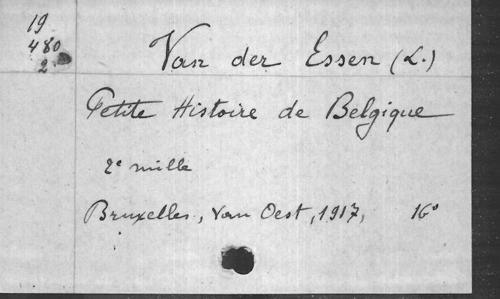 19
480
2
Van der Essen (L.)
Petite Histoire de Belgique
2e mille
Bruxelles, Van Oest, 1917, 16°